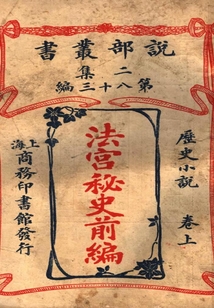 說部叢書
第二集八十三編
歷史小說 卷上
法宮秘史前編
上海商務印書館發行